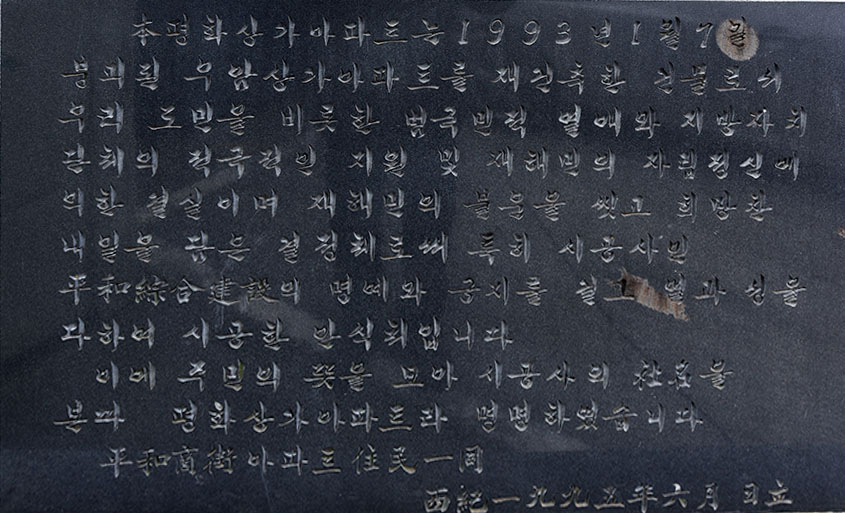 本평화상가아파트는 1993년 1월 7일
붕괴된 우암상가아파트를 재건축한 건물로서
우리 도민을 비롯한 범국민적 열애와 지방자치
단체의 적극적인 지원 및 재해민의 자립정신에
의한 결실이며 재해민의 불운을 씻고 희망찬
내일을 담은 결정체로써 특히 시공사인
平和綜合建設의 명예와 긍지를 걸고 열과 성을
다하여 시공한 안식처입니다
이에 주민의 뜻을 모아 시공사의 社名을
본따 평화상가아파트라 명명하였습니다
平和商街아파트 住民一同
西紀一九九五年六月 日立